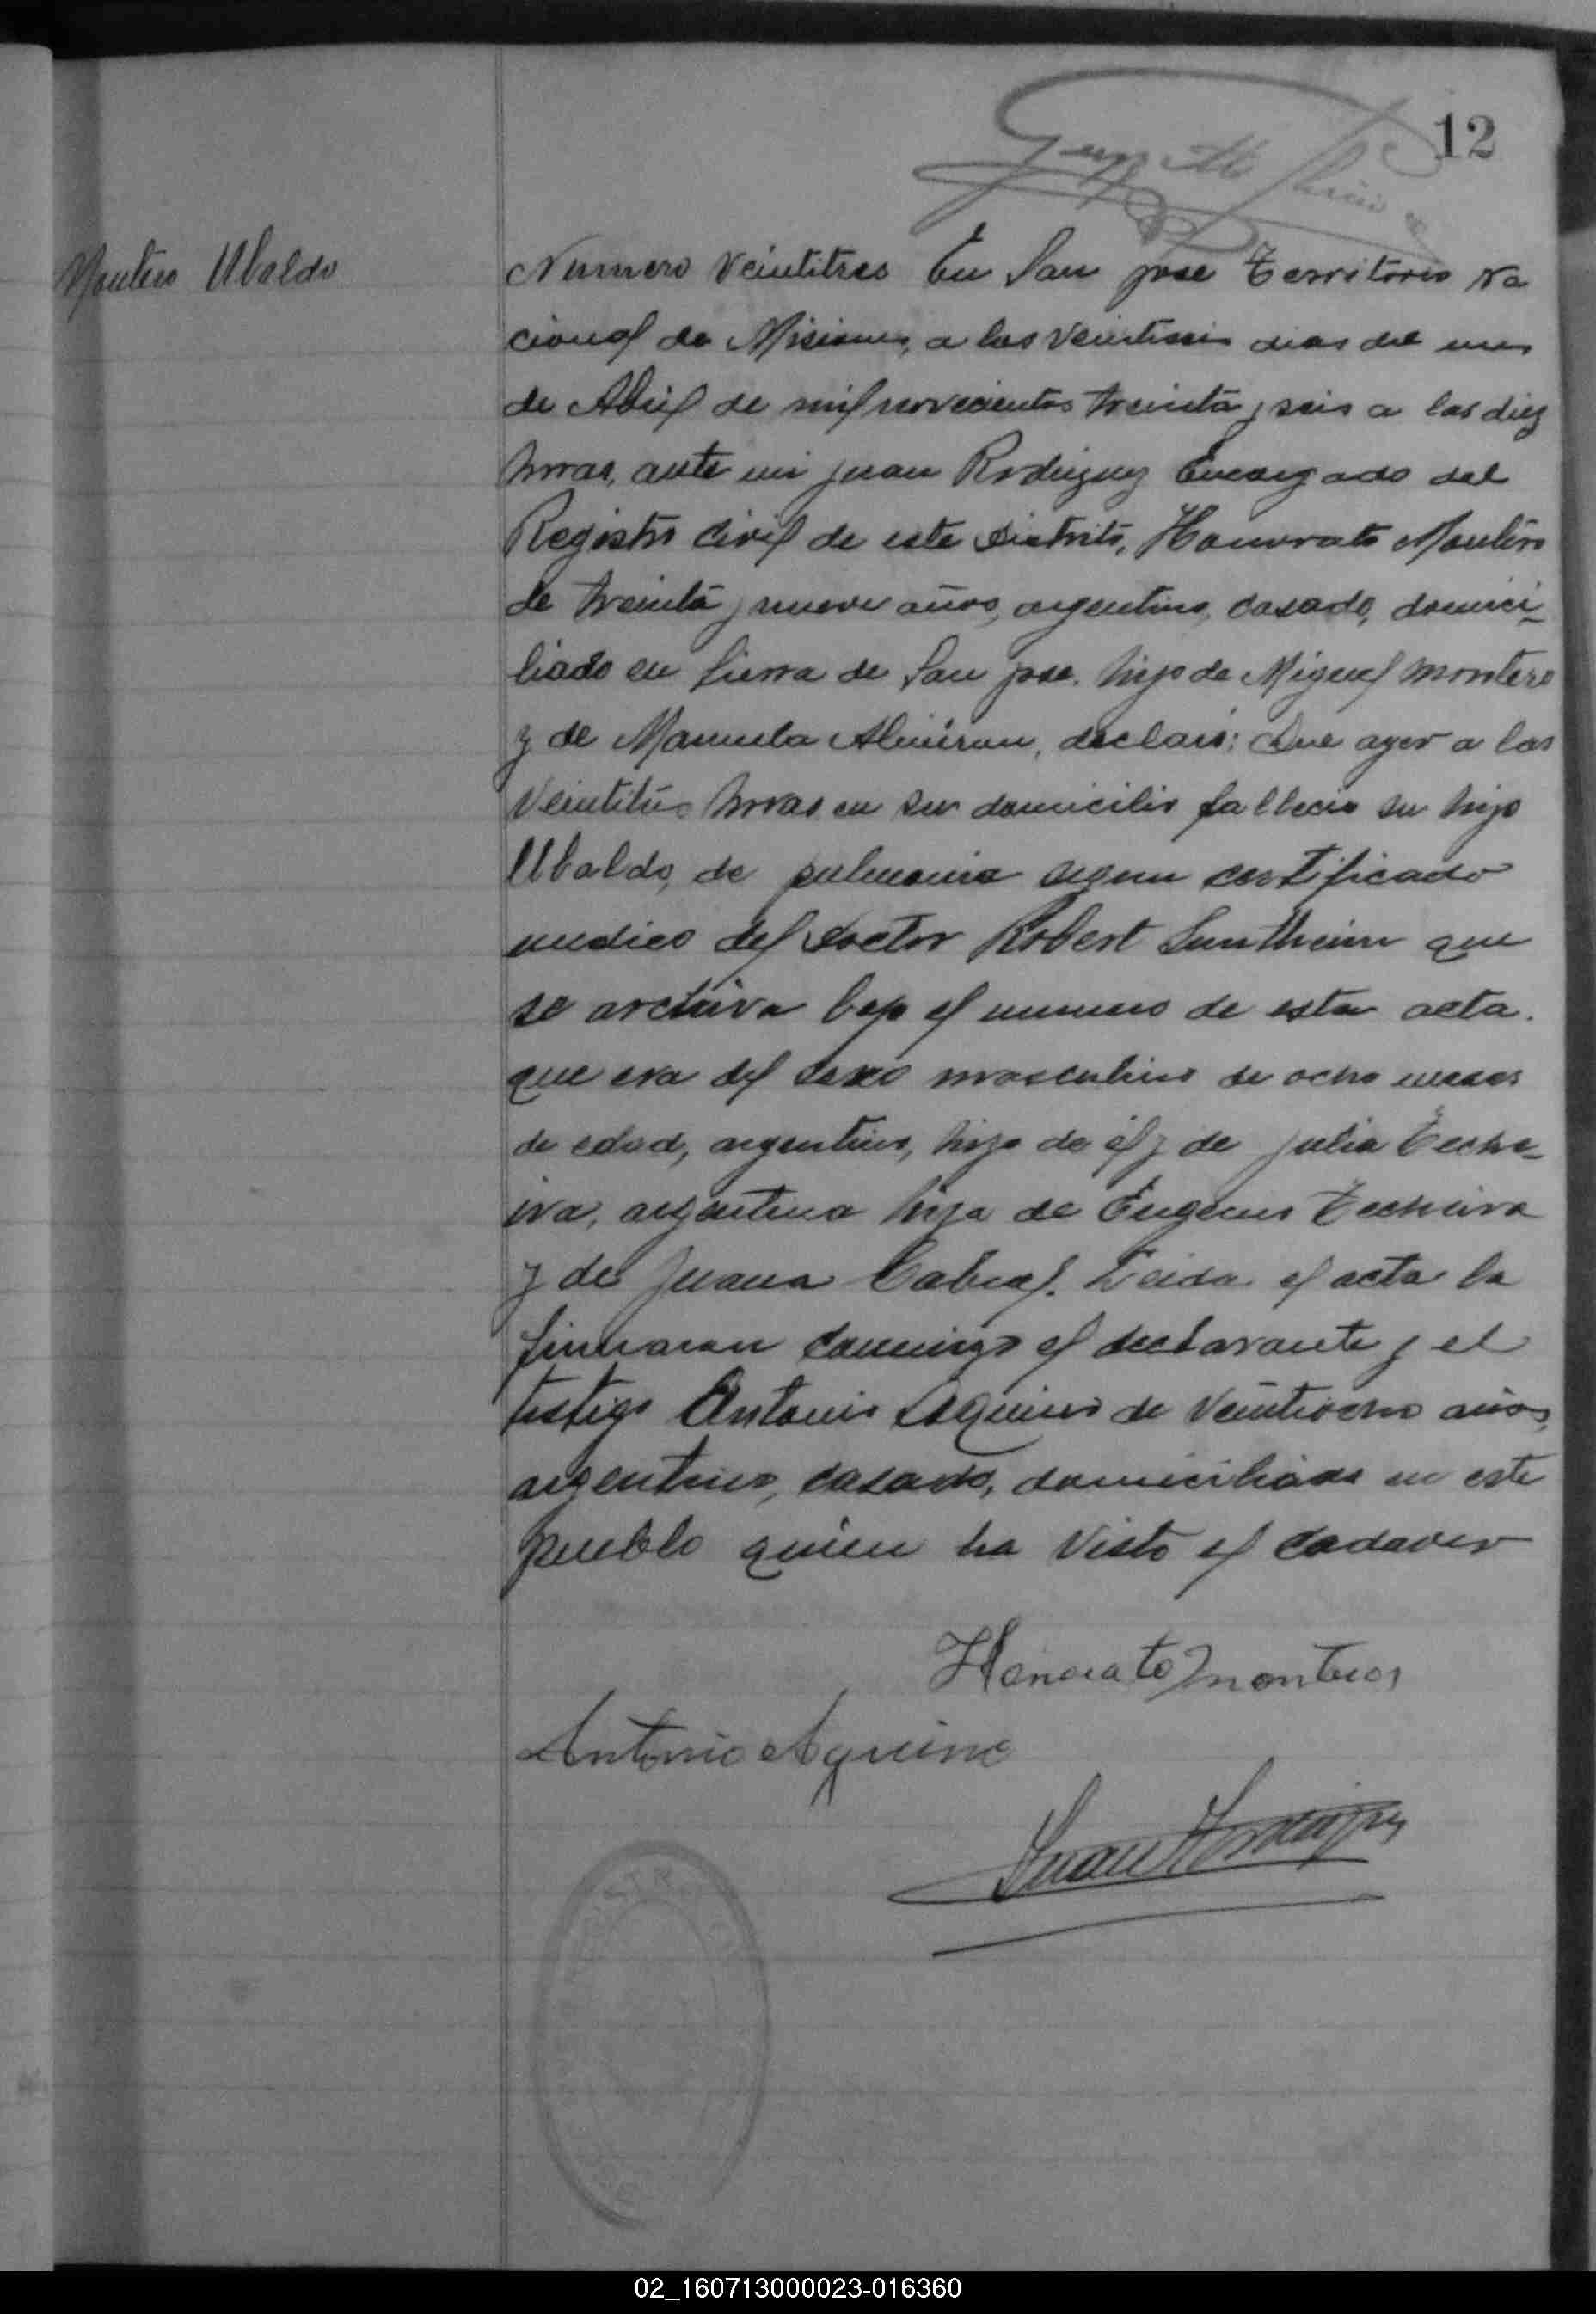 12
Montero Ubaldo
Numero Veintitres En San jose Territorio Na
cional de Misiones, a los Veintiseis dias del mes
de Abril de mil novecientos treinta y seis a las diez
horas, ante mi juan Rodriguez Encargado del
Registro Civil de este Distrito, Honorato Montero
de treinta y nueve años, argentino, casado, domici-
liado en Sierra de San jose. hijo de Miguel Montero
y de Manuela Almiron, declaró: Que ayer a las
horas en su domicilio fallecio su hijo
Ubaldo, de pulmonia segun certificado
medico del Doctor Robert que
se archiva bajo el numero de esta acta.
que era del sexo masculino de ocho meses
de edad, argentino, hijo de él y de julia Teche-
ira, argentina hija de Eugenio Techeira
y de Juana Cabral. Leida el acta la
firmaron conmigo el declarante y el
testigo Antonio Aquino de Veintiocho años,
argentino, casado, domiciliado en este
pueblo quien ha Visto el cadaver
Honorato Montero
Antonio Aquino
Juan Rodriguez
02_160713000023-016360